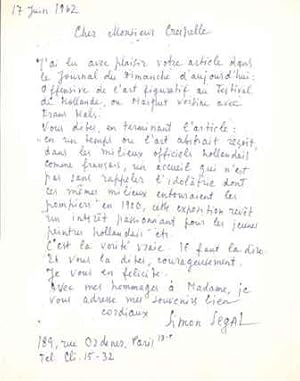 17 Juin 1962
Cher Monsieur Crespelle
J'ai lu avec plaisir votre article dans
le Journal du Dimanche d'aujourd'hui:
Offensive de l'art figuratif au Festival
de Hollande, ou Marquet voisine avec
Frans Hals.
Vous dites, en terminant l'article:
"en un temps ou l'art abstrait reçoit,
dans les milieux officiels hollandais
comme français, un accueil qui n'est
pas sans rappeler l'idolâtrie dont
ces mêmes milieux entouraient les
"pompiers" en 1900, cette exposition revêt
un intérêt passionnant pour les jeunes
peintres hollandais" etc.
C'est la vérité vraie. Il faut la dire
Et vous la dites, courageusement.
Je vous en felicite.
Avec mes hommages à Madame, je
vous adresse mes souvenirs bien
cordiaux
Simon Segal
189, rue Ordener, Paris 18e
Tel. Cli. 15-32